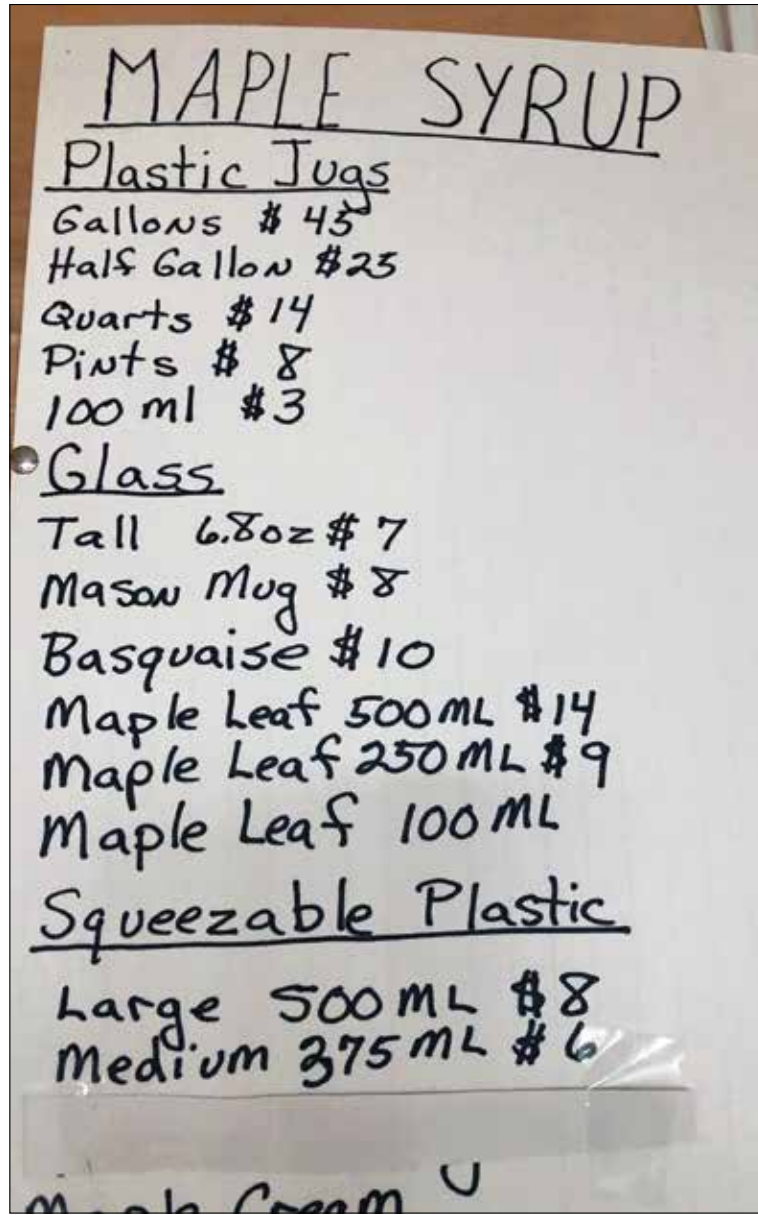 MAPLE SYRUP
Plastic Jugs
Gallons $ 45
Half Gallon $25
Quarts $14
Pints $ 8
100 ml $3
Glass
Tall 6.8oz $ 7
Mason Mug $ 8
Basquaise $10
Maple Leaf 500 ML $14
Maple Leaf 250 ML $9
Maple Leaf 100 ML
Squeezable Plastic
Large 500 ML $8
Medium 375 ML $6
Maple Cream